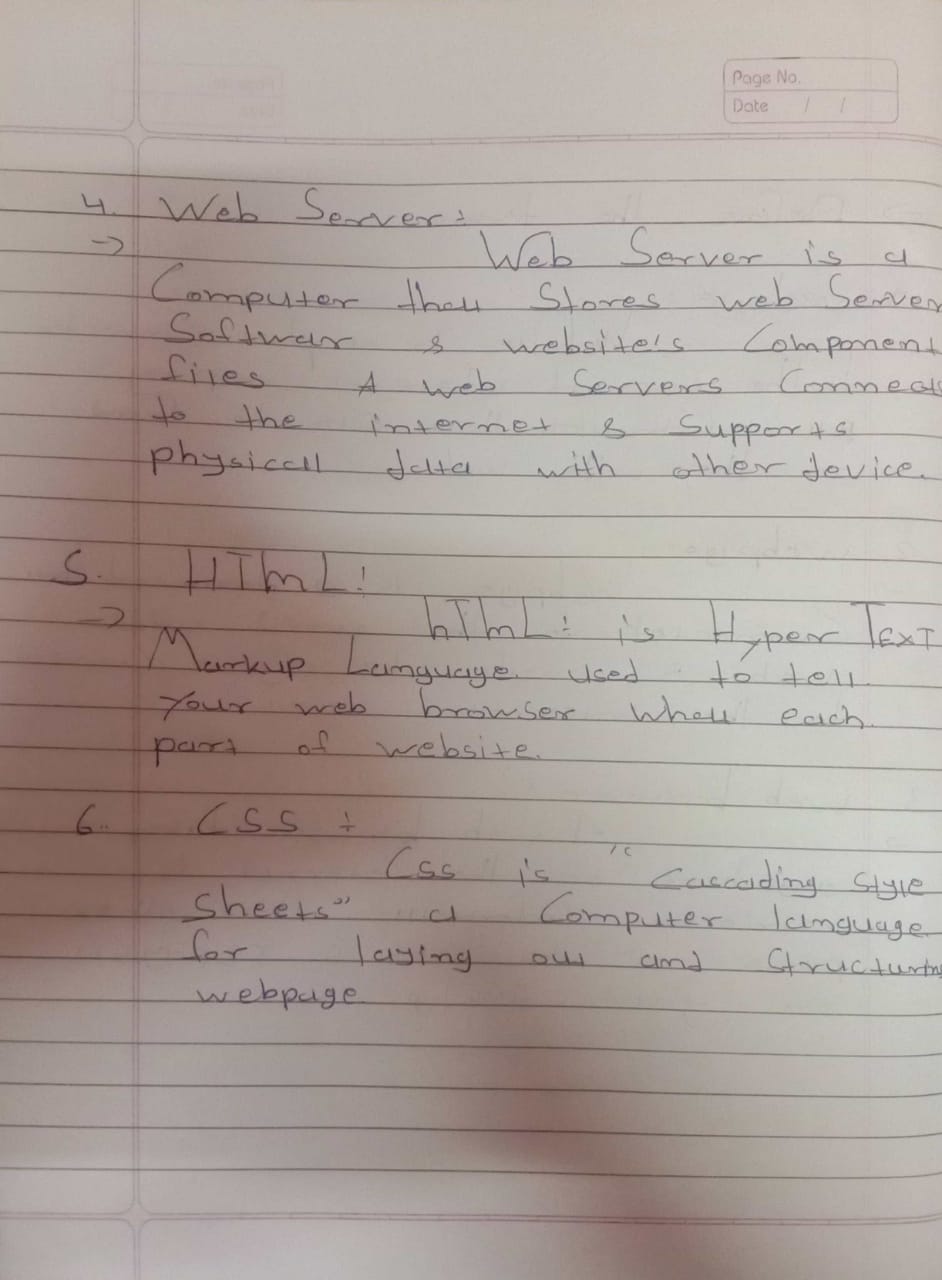 Page No.
Date / /
4. Web Server:
→ Web Server is a
Computer that Stores web Server
Softwar & website's Component
files A web Servers Connects
to the internet & Supports
physical data with other device.
5. HTmL:
→ hTmL: is Hyper TEXT
Markup Language. used to tell
Your web browser what each
part of website.
6. CSS :
Css is "Cascading Style
Sheets" a Computer language
for laying out and Structuring
webpage